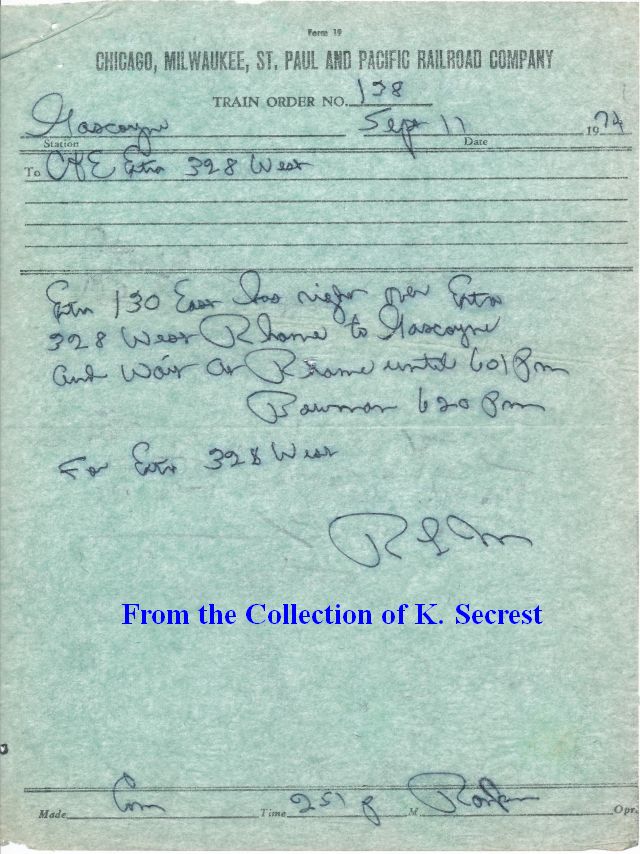 Form 19
CHICAGO, MILWAUKEE, ST. PAUL AND PACIFIC RAILROAD COMPANY
TRAIN ORDER NO. 138
Gascoyne Sept 11 1974
Station Date
To C&E Extra 328 West
Extra 130 East has right over Extra
328 West Rhame to Gascoyne
and Wait at Rhame until 601 Pm
Bowman 620 Pm
For Extra 328 West
From the Collection of K. Secrest
Made Com Time 251 P M Opr.